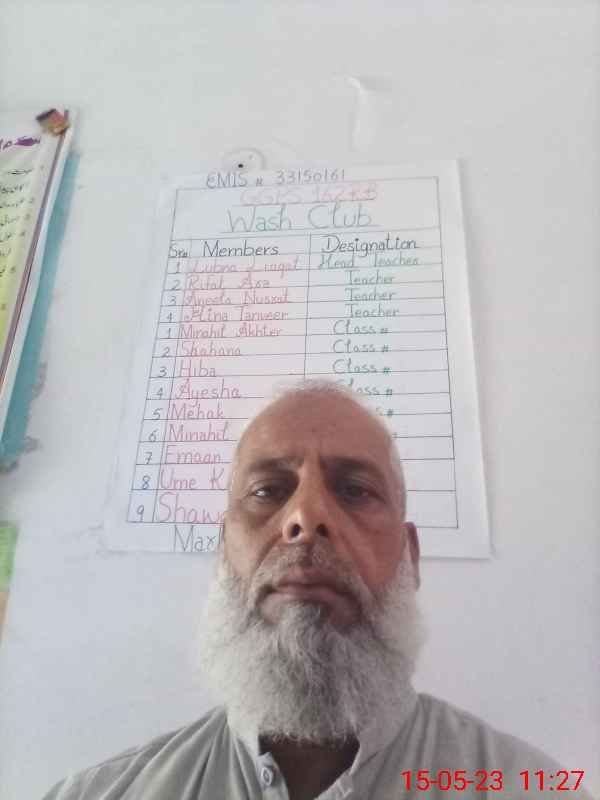 EMIS # 33150161
GGPS 162RB
Wash Club
Sr# Members Designation
1 Lubna Liaqat Head Teacher
2 Rifat Asa Teacher
3 Aneela Nusrat Teacher
4 Hina Tanveer Teacher
1 Minahil Akhter Class #
2 Shahana Class #
3 Hiba Class #
4 Ayesha Class #
5 Mehak #
6 Minahil
7 Emaan
8 Ume K
9 Shaw
15-05-23 11:27